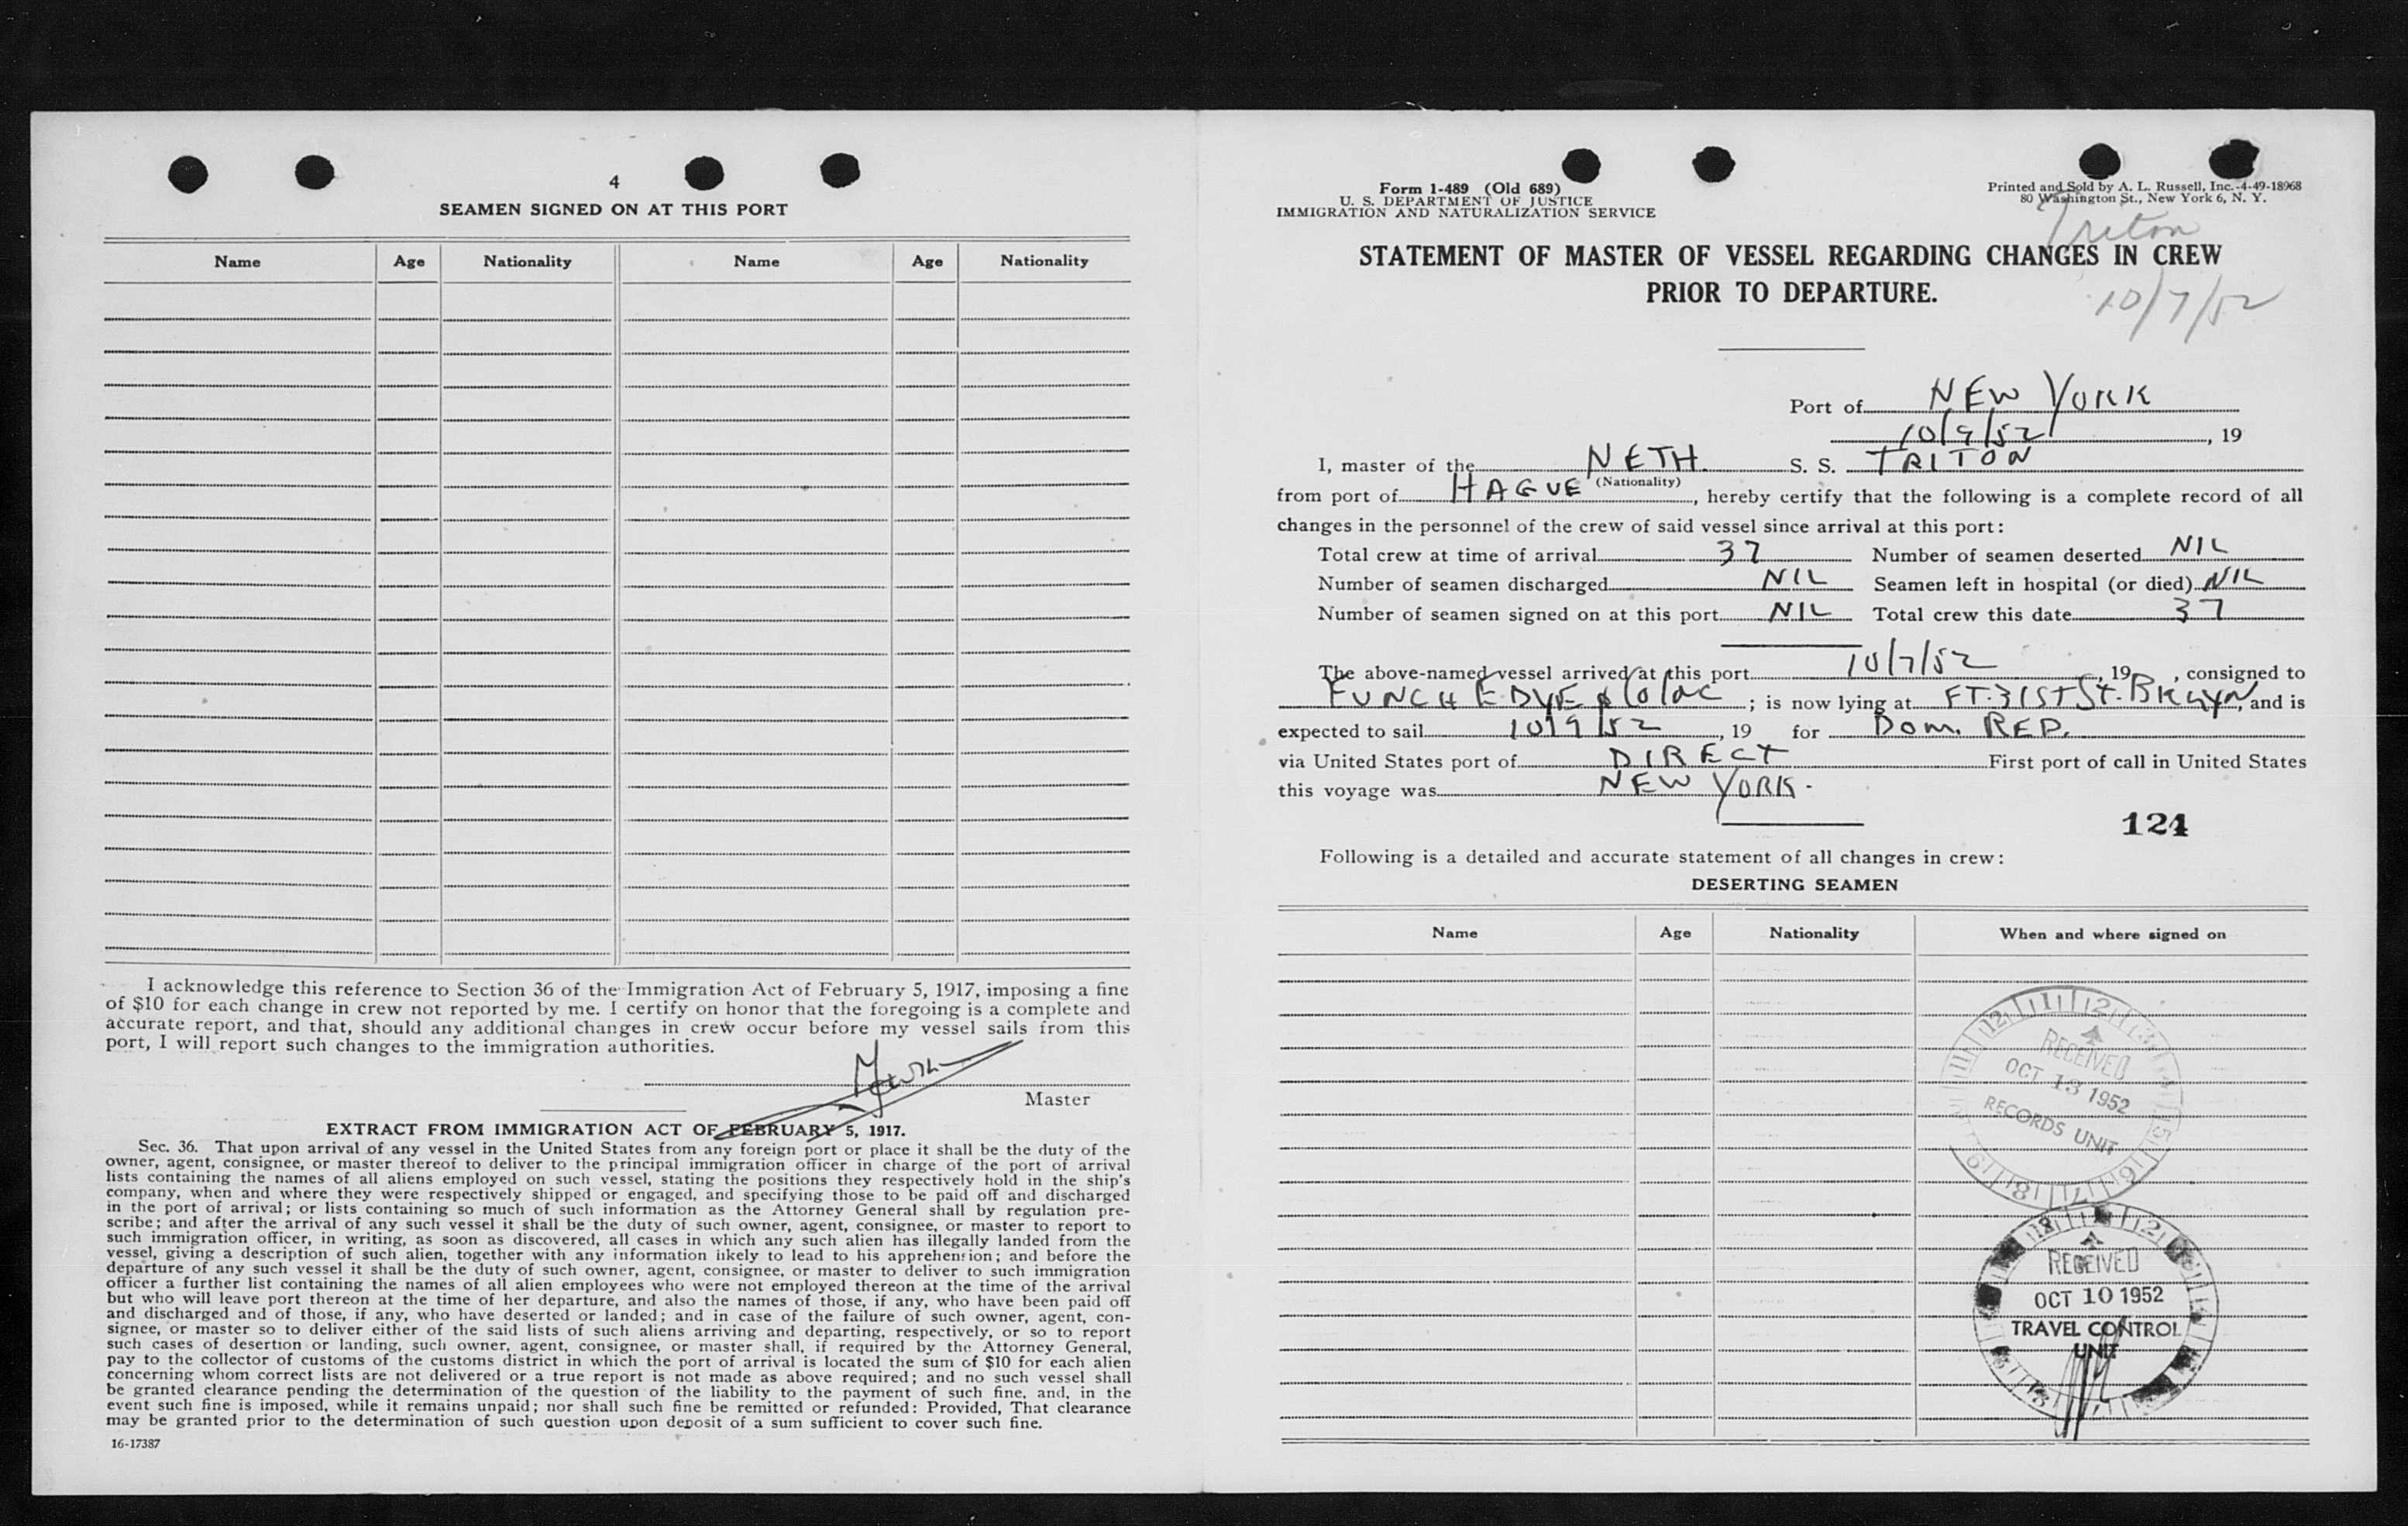 4
SEAMEN SIGNED ON AT THIS PORT
Name Age Nationality Name Age Nationality
I acknowledge this reference to Section 36 of the Immigration Act of February 5, 1917, imposing a fine
of $10 for each change in crew not reported by me. I certify on honor that the foregoing is a complete and
accurate report, and that, should any additional changes in crew occur before my vessel sails from this
port, I will report such changes to the immigration authorities.
Master
EXTRACT FROM IMMIGRATION ACT OF FEBRUARY 5, 1917.
Sec. 36. That upon arrival of any vessel in the United States from any foreign port or place it shall be the duty of the
owner, agent, consignee, or master thereof to deliver to the principal immigration officer in charge of the port of arrival
lists containing the names of all aliens employed on such vessel, stating the positions they respectively hold in the ship's
company, when and where they were respectively shipped or engaged, and specifying those to be paid off and discharged
in the port of arrival; or lists containing so much of such information as the Attorney General shall by regulation pre-
scribe; and after the arrival of any such vessel it shall be the duty of such owner, agent, consignee, or master to report to
such immigration officer, in writing, as soon as discovered, all cases in which any such alien has illegally landed from the
vessel, giving a description of such alien, together with any information likely to lead to his apprehension; and before the
departure of any such vessel it shall be the duty of such owner, agent, consignee, or master to deliver to such immigration
officer a further list containing the names of all alien employees who were not employed thereon at the time of the arrival
but who will leave port thereon at the time of her departure, and also the names of those, if any, who have been paid off
and discharged and of those, if any, who have deserted or landed; and in case of the failure of such owner, agent, con-
signee, or master so to deliver either of the said lists of such aliens arriving and departing, respectively, or so to report
such cases of desertion or landing, such owner, agent, consignee, or master shall, if required by the Attorney General,
pay to the collector of customs of the customs district in which the port of arrival is located the sum of $10 for each alien
concerning whom correct lists are not delivered or a true report is not made as above required; and no such vessel shall
be granted clearance pending the determination of the question of the liability to the payment of such fine, and, in the
event such fine is imposed, while it remains unpaid; nor shall such fine be remitted or refunded: Provided, That clearance
may be granted prior to the determination of such question upon deposit of a sum sufficient to cover such fine.
16-17387
Form 1-489 (Old 689)
U. S. DEPARTMENT OF JUSTICE
IMMIGRATION AND NATURALIZATION SERVICE
Printed and Sold by A. L. Russell, Inc.-4-49-18968
80 Washington St., New York 6, N. Y.
Triton
STATEMENT OF MASTER OF VESSEL REGARDING CHANGES IN CREW
PRIOR TO DEPARTURE.
10/7/52
Port of NEW YORK
10/9/52, 19
I, master of the NETH. S. S. TRITON
(Nationality)
from port of HAGUE, hereby certify that the following is a complete record of all
changes in the personnel of the crew of said vessel since arrival at this port:
Total crew at time of arrival 37 Number of seamen deserted NIL
Number of seamen discharged NIL Seamen left in hospital (or died) NIL
Number of seamen signed on at this port NIL Total crew this date 37
The above-named vessel arrived at this port 10/7/52, 19 , consigned to
FUNCH EDYE & Co Inc; is now lying at FT. 31ST ST. BKLYN, and is
expected to sail 10/9/52, 19 for DOM. REP.
via United States port of DIRECT First port of call in United States
this voyage was NEW YORK.
124
Following is a detailed and accurate statement of all changes in crew:
DESERTING SEAMEN
Name Age Nationality When and where signed on
RECEIVED
OCT 13 1952
RECORDS UNIT
RECEIVED
OCT 10 1952
TRAVEL CONTROL
UNIT